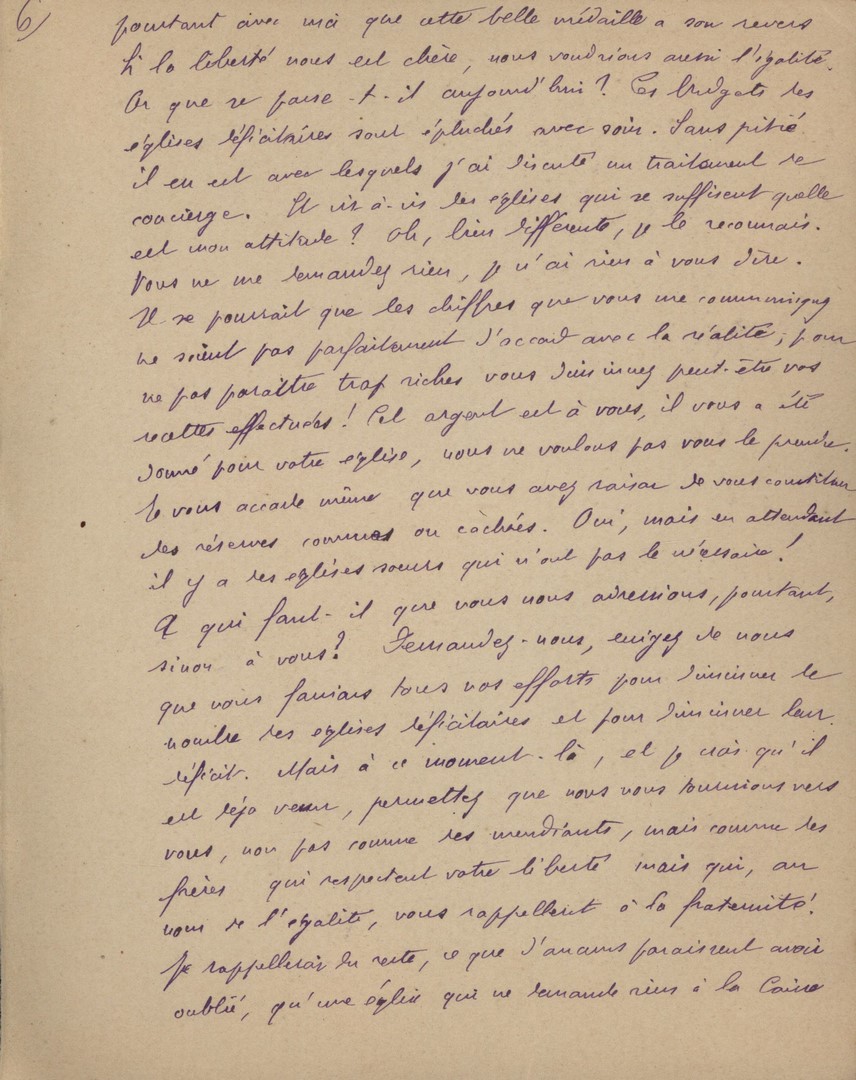 6)
pourtant avec moi que cette belle médaille a son revers
Si la liberté nous est chère, nous voudrions aussi l'égalité.
Or que se passe-t-il aujourd'hui? Les budgets des
églises déficitaires sont épluchés avec soin. Sans pitié
il en est avec lesquels j'ai discuté un traitement de
concierge. Et vis-à-vis des églises qui se suffisent quelle
est mon attitude? Oh, bien différente, je le reconnais.
Vous ne me demandez rien, je n'ai rien à vous dire.
Il se pourrait que les chiffres que vous me communiquez
ne soient pas parfaitement d'accord avec la réalité; pour
ne pas paraître trop riches vous diminuez peut-être vos
recettes effectuées! Cet argent est à vous, il vous a été
donné pour votre église, nous ne voulons pas vous le prendre.
Je vous accorde même que vous avez raison de vous constituer
des réserves connues ou cachées. Oui, mais en attendant
il y a des églises soeurs qui n'ont pas le nécessaire!
A qui faut-il que vous nous adressions, pourtant,
sinon à vous? Demandez-nous, exigez de nous
que nous fassions tous nos efforts pour diminuer le
nombre des églises déficitaires et pour diminuer leur
déficit. Mais à ce moment-là, et je crois qu'il
est déjà venu, permettez que nous nous tournions vers
vous, non pas comme des mendiants, mais comme des
frères qui respectent votre liberté mais qui, au
nom de l'égalité, vous rappellent à la fraternité!
Je rappellerai du reste, ce que d'aucuns paraissent avoir
oublié, qu'une église qui ne demande rien à la Caisse